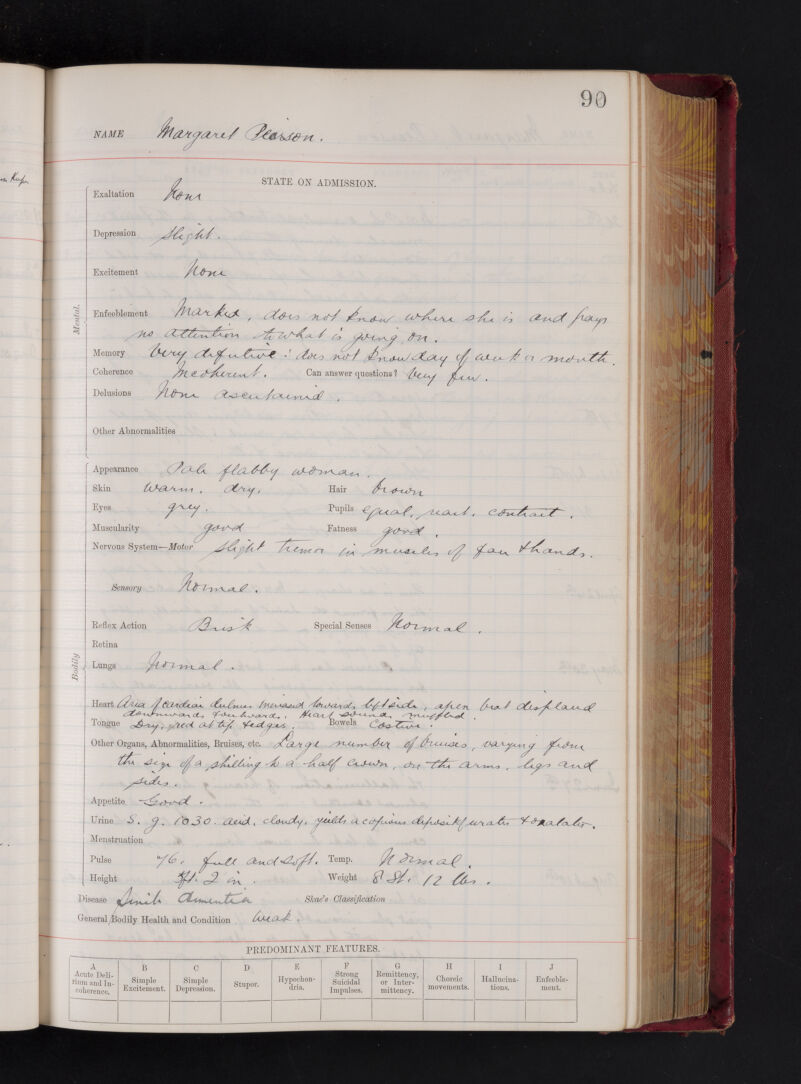 90
NAME Margaret Pearson.
STATE ON ADMISSION.
Mental.
Exaltation None
Depression Slight.
Excitement None
Enfeeblement Marked, does not know where she is and pays
no attention to what is going on.
Memory Very defective: does not know day of week or month.
Coherence Incoherent. Can answer questions? Very few.
Delusions None ascertained.
Other Abnormalities
Bodily
Appearance Pale flabby woman.
Skin warm, dry, Hair brown
Eyes grey. Pupils equal, react, contract.
Muscularity good Fatness good.
Nervous System—Motor Slight tremor in muscles of face & hands.
Sensory Normal.
Reflex Action Brisk Special Senses Normal.
Retina
Lungs Normal.
Heart Area of cardiac dulness increased towards left side, apex beat displaced
downwards & outwards. Heart sounds muffled.
Tongue Dry, red at tip & edges. Bowels Costive.
Other Organs, Abnormalities, Bruises, etc. Large number of bruises, varying from
the size of a shilling to a half crown, on the arms, legs and
sides.
Appetite Good.
Urine S. g. 1030. acid, cloudy, yields a copious deposit of urates & oxalates.
Menstruation
Pulse 76, full and soft. Temp. Normal.
Height 5ft. 2 in. Weight 8 St. 12 lbs.
Disease Senile dementia Skae's Classification
General Bodily Health and Condition Weak.
PREDOMINANT FEATURES.
A Acute Delirium and Incoherence. B Simple Excitement. C Simple Depression. D Stupor. E Hypochondria. F Strong Suicidal Impulses. G Remittency, or Intermittency. H Choreic movements. I Hallucinations. J Enfeeblement.